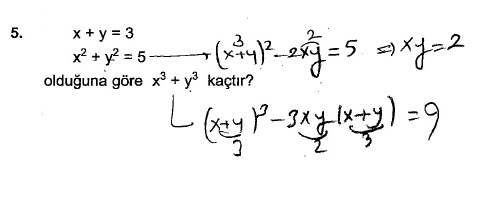 5. x + y = 3
x² + y² = 5 → (x+y)² - 2xy = 5 ⇒ xy = 2
3 2
olduğuna göre x³ + y³ kaçtır?
(x+y)³ - 3xy(x+y) = 9
3 2 3